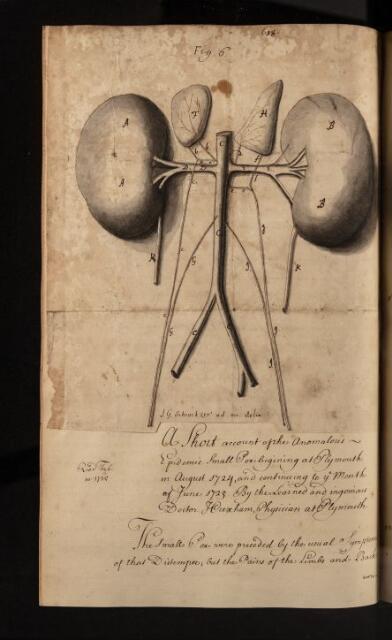 Fig 6
A
A
F
H
B
B
C
K
K
G
C
A Short account of the Anomalous
Epidemic Small Pox begining at Plymouth
in August 1724, and continuing to yͤ Month
of June 1725 By the Learned and ingenious
Doctor Huxham, Physician at Plymouth
The Small Pox were preceded by the usual Symptoms
of that Distemper, but the Pains of the Limbs and Back